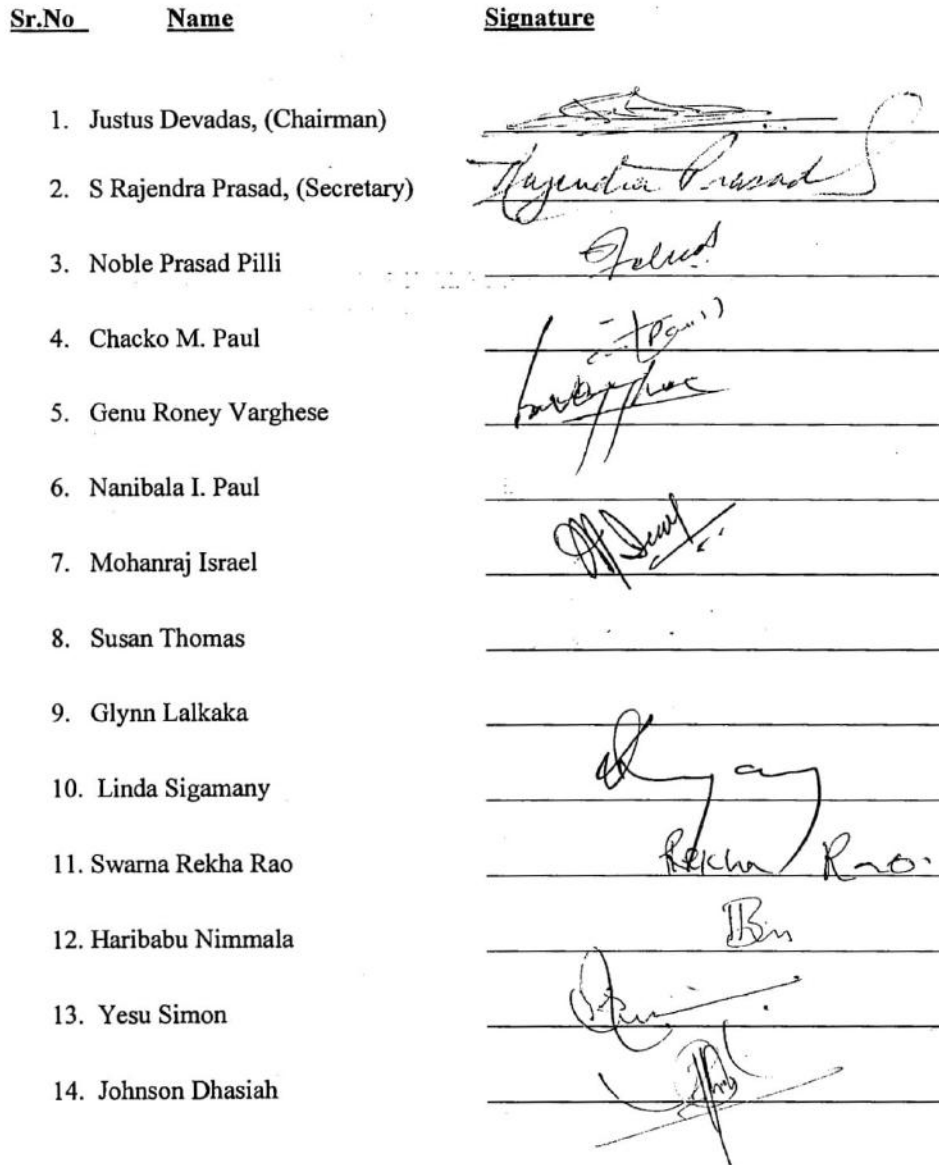 Sr.No Name Signature
1. Justus Devadas, (Chairman)
2. S Rajendra Prasad, (Secretary) Rajendra Prasad S
3. Noble Prasad Pilli
4. Chacko M. Paul
5. Genu Roney Varghese
6. Nanibala I. Paul
7. Mohanraj Israel
8. Susan Thomas
9. Glynn Lalkaka
10. Linda Sigamany
11. Swarna Rekha Rao Rekha Rao
12. Haribabu Nimmala
13. Yesu Simon
14. Johnson Dhasiah